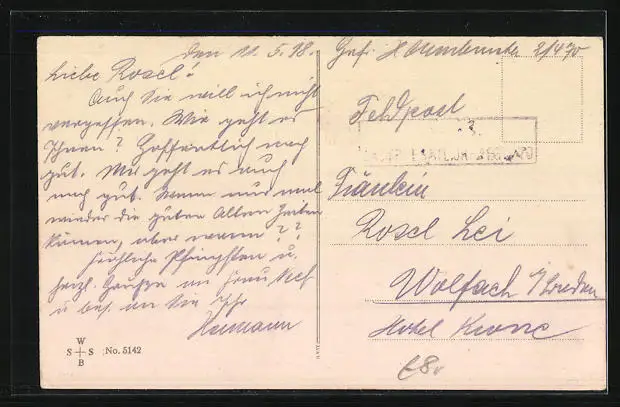 den 11.5.18.
Liebe Rosel!
Auch Sie will ich nicht
vergessen. Wie geht es
Ihnen? Hoffentlich noch
gut. Mir geht es auch
noch gut. Wenn nur mal
wieder die guten Alten Zeiten
kämen, aber wann??
Fröhliche Pfingsten u.
herzl. Grüße an Frau
u. bes. an Sie Ihr
Hermann
W
S S
B
No. 5142
Gefr. H. 2/470
Feldpost
Fräulein
Rosel Lei
Wolfach i/Baden
Hotel Krone